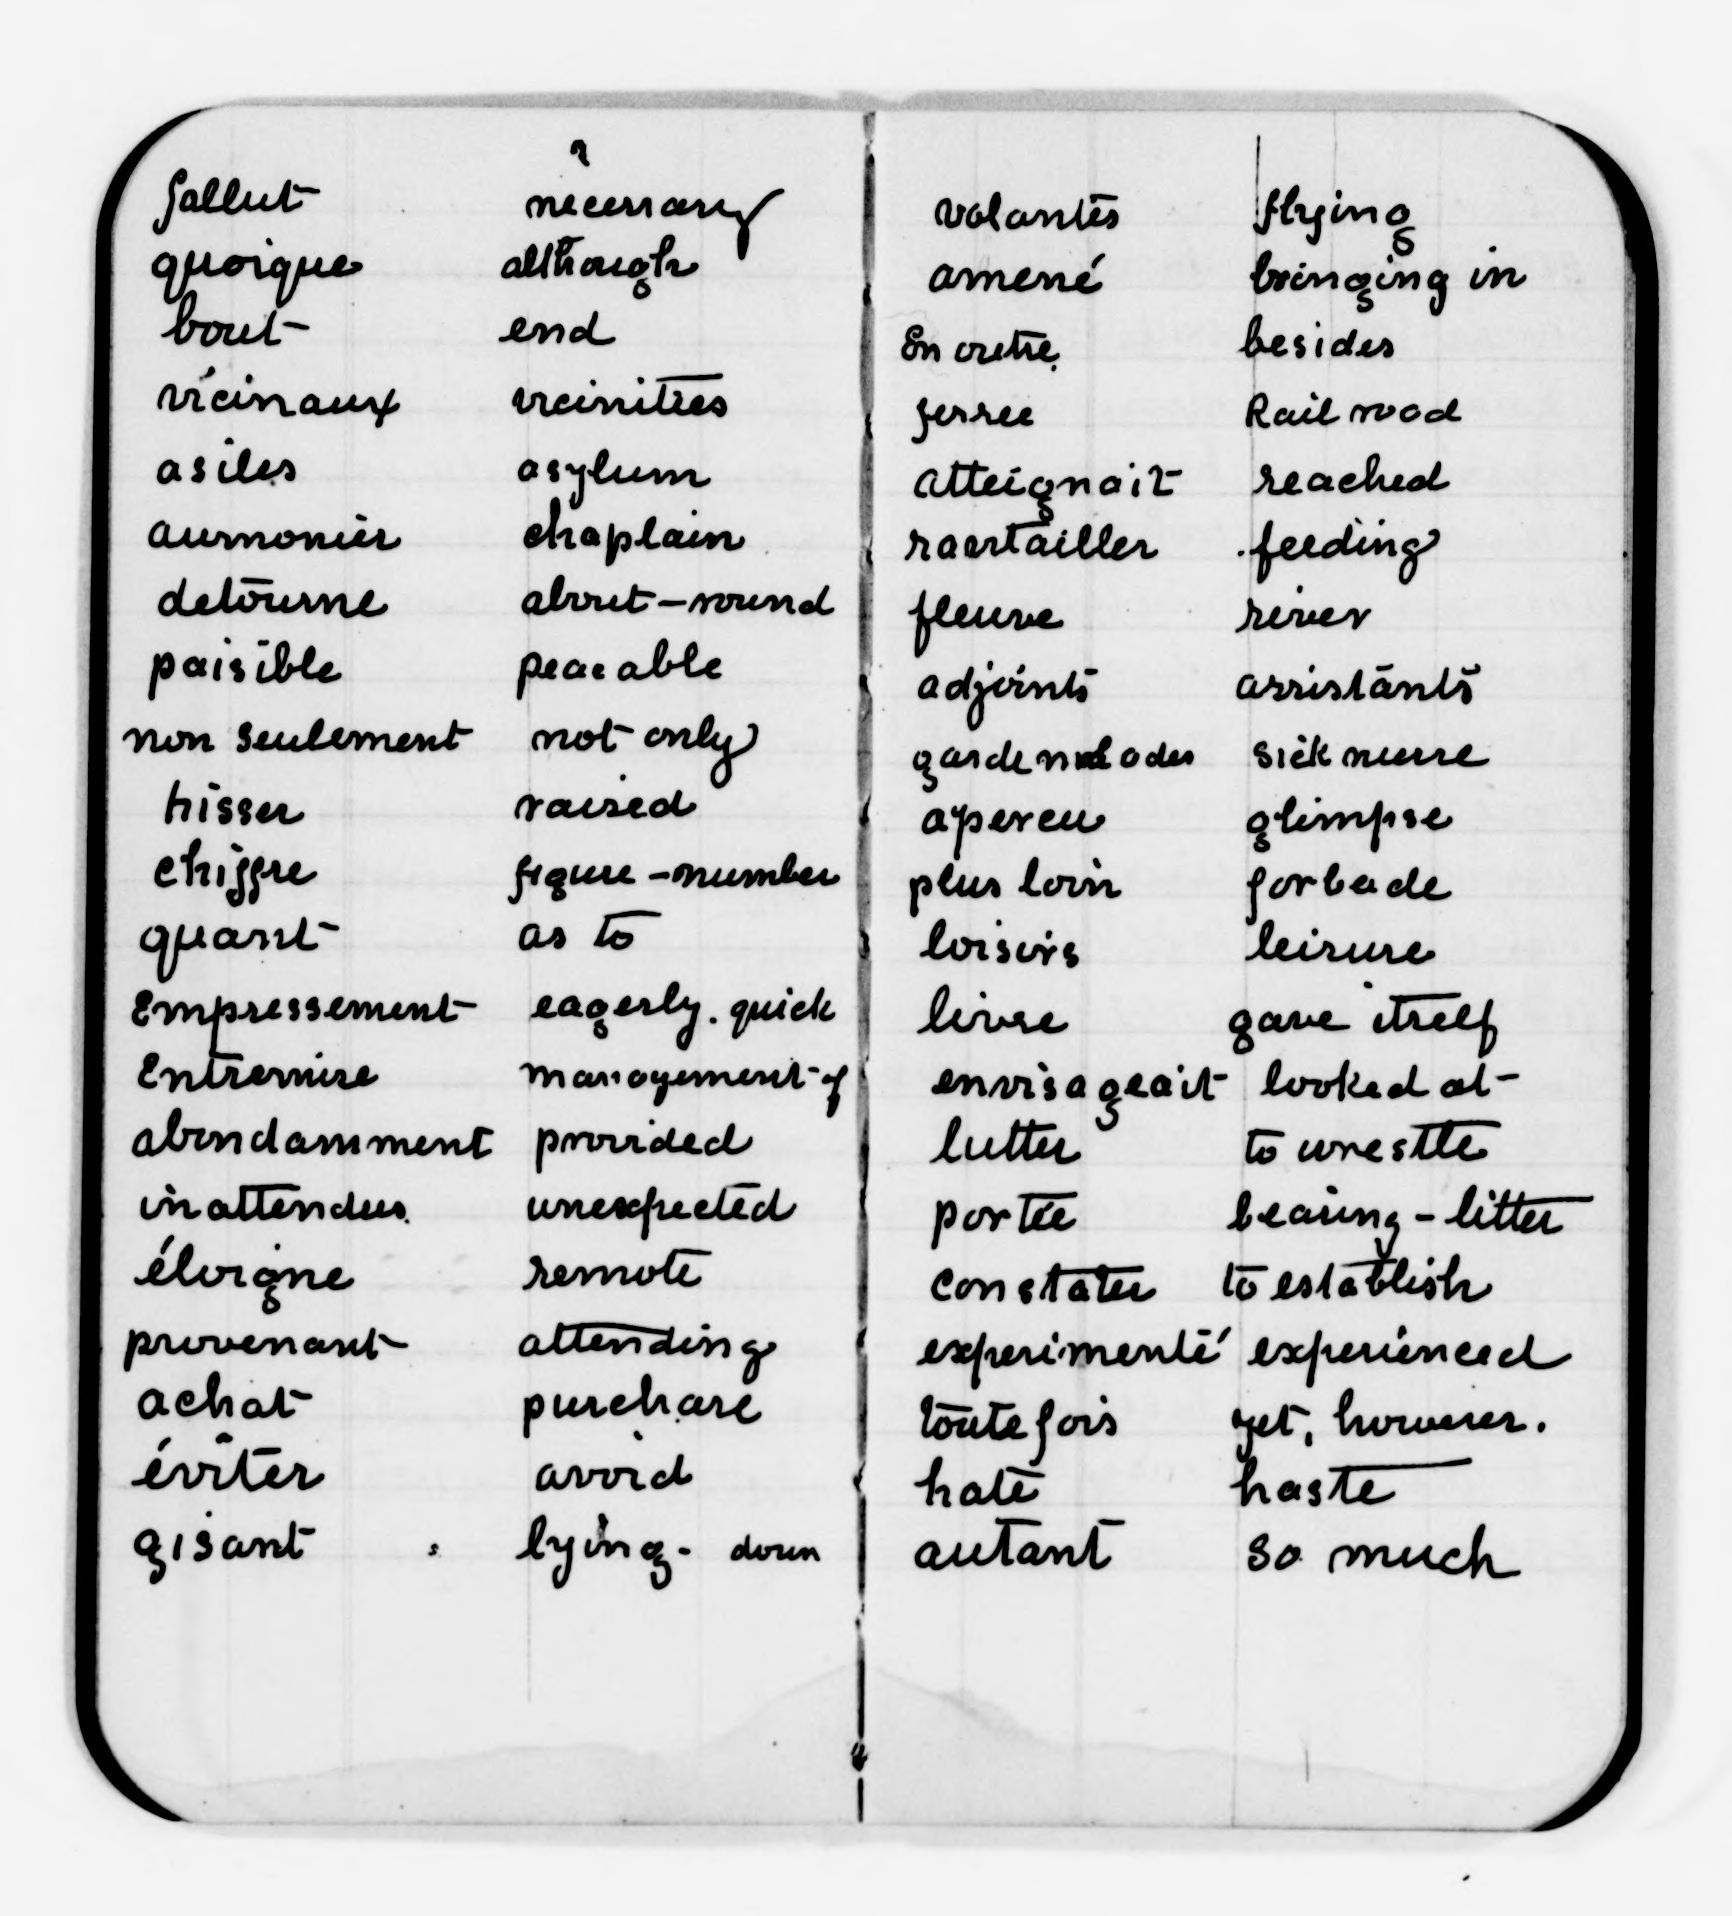 fallut necessary
quoique although
bout end
vicinaux vicinities
asiles asylum
aumonier chaplain
detourne about-round
paisible peaceable
non seulement not only
hisser raised
chiffre figure-number
quant as to
Empressement eagerly. quick
Entremise management of
abondamment provided
inattendus unexpected
éloigne remote
provenant attending
achat purchase
éviter avoid
gisant lying-down
volantes flying
amené bringing in
En outre besides
ferree Railroad
atteignait reached
ravitailler feeding
fleuve river
adjoints assistants
garde malades sick nurse
apercu glimpse
plus loin forbade
loisirs leisure
livre gave itself
envisageait looked at
lutter to wrestle
portée bearing-litter
constater to establish
experimenté experienced
toutefois yet, however.
hate haste
autant so much